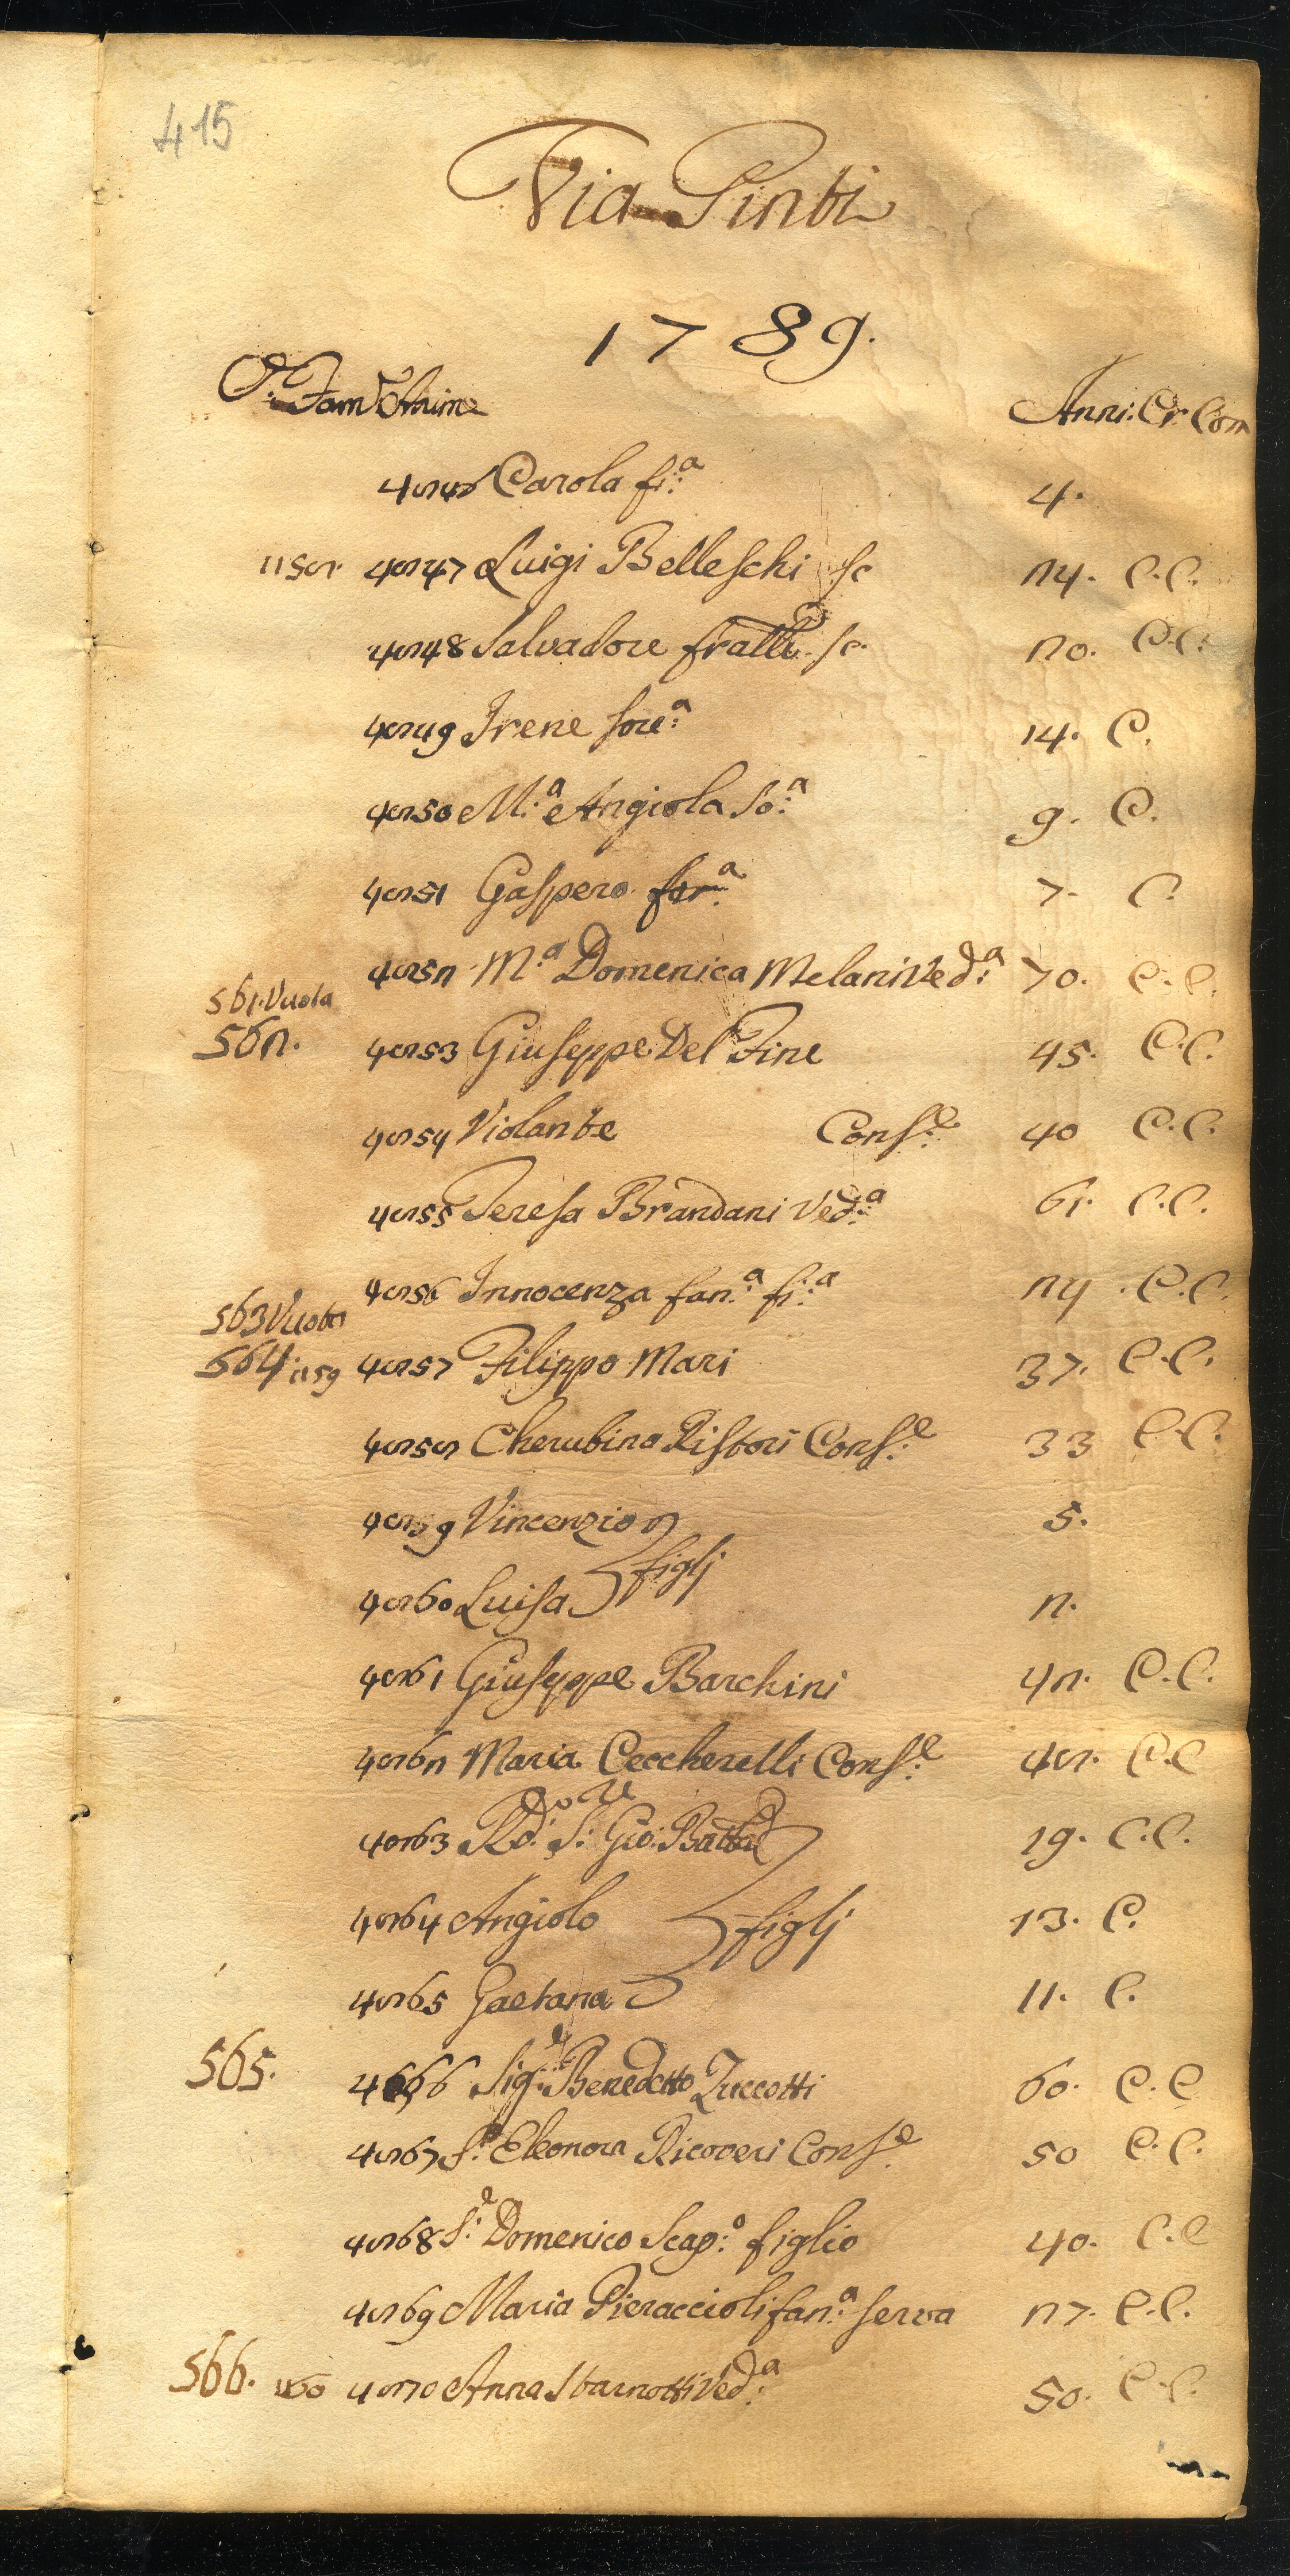 415
Via Pinti
1789.
C. Fam Anime
Anni: Cr Com
4846 Carola fi:ª 4.
1158. 4847 Luigi Belleschi sc 24. C.C.
4848 Salvadore fratello sc. 20. C.C.
4849 Irene sore:ª 14. C.
4850 M:ª Angiola So:ª 9. C.
4851 Gaspero 7. C.
4852 M:ª Domenica Melani Ved:ª 70. C.C.
561. Vuota
562. 4853 Giuseppe Del Fine 45. C.C.
4854 Violante Cons:e 40 C.C.
4855 Teresa Brandani Ved:ª 61. C.C.
4856 Innocenza fan:ª fi:ª 24. C.C.
563 Vuota
564. 1159 4857 Filippo Mari 37. C.C.
4858 Cherubina Ristori Cons:e 33 C.C.
4859 Vincenzio 5.
figlj
4860 Luisa 2.
4861 Giuseppe Barchini 42. C.C.
4862 Maria Ceccherelli Cons:e 48. C.C
4863 Rd:o S:re Gio: Batta 19. C.C.
4864 Angiolo figlj 13. C.
4865 Gaetana 11. C.
565. 4866 Sig:e Benedetto Zuccotti 60. C.C
4867 S:ª Eleonora Ricoveri Cons:e 50 C.C.
4868 S:e Domenico Scap:o figlio 40. C.C
4869 Maria Pieraccioli fan:ª serva 27. C.C.
566. 1160 4870 Anna Starnotti Ved:ª 50. C.C.